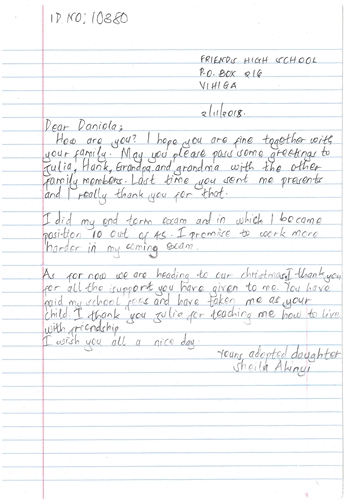 ID NO: 10380
FRIENDS HIGH SCHOOL
P.O. BOX 216
VIHIGA
2/11/2018.
Dear Daniola;
How are you? I hope you are fine together with
your family. May you please pass some greetings to
Julia, Hank, Grandpa and grandma with the other
family members. Last time you sent me presents
and I really thank you for that.
I did my end term exam and in which I became
position 10 out of 45. I promise to work more
harder in my coming exam.
As for now we are heading to our christmas, I thank you
for all the support you have given to me. You have
paid my school fees and have taken me as your
child. I thank you Julie for teaching me how to live
with friendship
I wish you all a nice day.
Yours adopted daughter
Sheila Akinyi